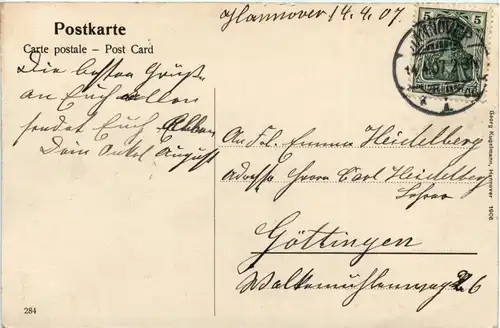 Postkarte
Carte postale – Post Card
Hannover 14.4.07.
5 5
HANNOVER
Die besten Grüße
an Euch allen
sendet Euch
Dein Onkel August
An Fl. Emma Heidelberg
Adresse Herrn Carl Heidelberg
Lehrer
Göttingen
Walkemühlenweg 26
Georg Kugelmann, Hannover 1906
284